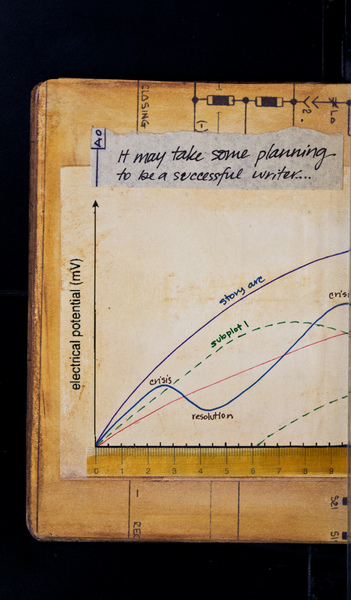 CLOSING
(-)
2.
A0
It may take some planning
to be a successful writer...
electrical potential (mV)
story arc
crisis
subplot 1
crisis
resolution
0 1 2 3 4 5 6 7 8 9
521